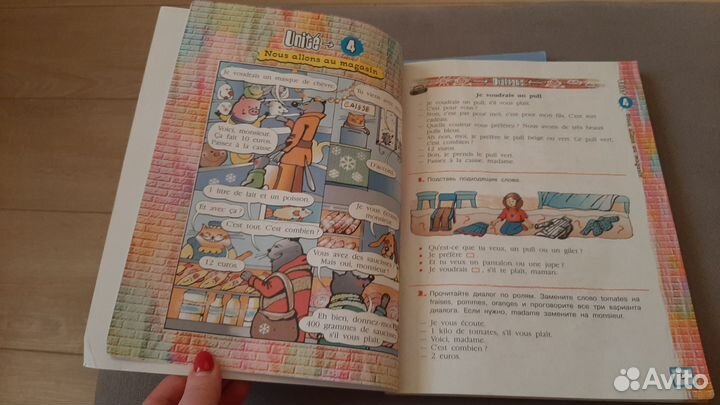 Unité 4
Nous allons au magasin
Je voudrais un masque de chèvre.
Tu viens avec
CAISSE
Voici, monsieur.
Ça fait 10 euros.
Passez à la caisse
D'accord
1 litre de lait et un poisson.
Et avec ça ?
C'est tout. C'est combien ?
Je vous écoute
monsieur.
12 euros.
Vous avez des saucisses
Mais oui, monsieur!
Eh bien, donnez-moi
400 grammes de saucisse
s'il vous plaît.
Dialogue
4
Je voudrais un pull
– Je voudrais un pull, s'il vous plaît.
– C'est pour vous ?
– Non, c'est pas pour moi, c'est pour mon fils. C'est son
cadeau.
– Quelle couleur vous préférez ? Nous avons de très beaux
pulls bleus.
– Ah non, moi, je préfère le pull beige ou vert. Ce pull vert,
c'est combien ?
– 12 euros.
– Bon, je prends le pull vert.
– Passez à la caisse, madame.
Подставь подходящие слова.
– Qu'est-ce que tu veux, un pull ou un gilet ?
– Je préfère
– Et tu veux un pantalon ou une jupe ?
– Je voudrais , s'il te plaît, maman.
Прочитайте диалог по ролям. Замените слово tomates на
fraises, pommes, oranges и проговорите все три варианта
диалога. Если нужно, madame замените на monsieur.
– Je vous écoute.
– 1 kilo de tomates, s'il vous plaît.
– Voici, madame.
– C'est combien ?
– 2 euros.
Avito